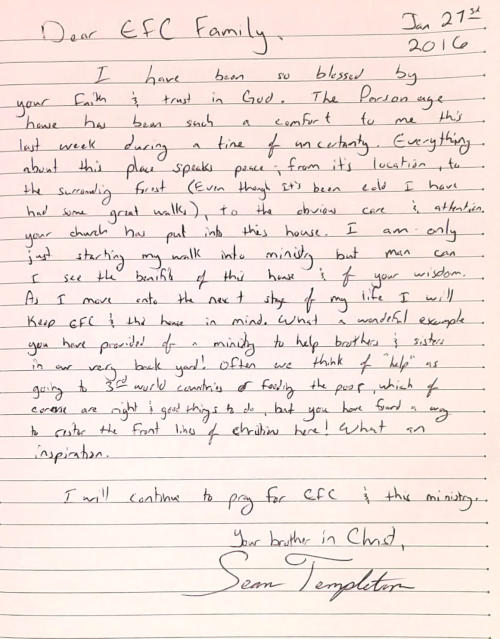 Jan 27st
Dear EFC Family,
2016
I have been so blessed by
your Faith & trust in God. The Parsonage
house has been such a comfort to me this
last week during a time of uncertanty. Everything
about this place speaks peace; from it's location, to
the surronding forest (Even though it's been cold I have
had some great walks), to the obvious care & attention
your church has put into this house. I am only
just starting my walk into ministry but man can
I see the benifits of this house & of your wisdom.
As I move onto the next stage of my life I will
Keep EFC & this house in mind. What a wonderful example
you have provided of a ministry to help brothers & sisters
in our very back yard! Often we think of "help" as
going to 3rd world countries or feeding the poor, which of
course are right & good things to do, but you have found a way
to the front lines of here! What an
inspiration.
I will continue to pray for EFC & this ministry.
Your brother in Christ,
Sean Templeton